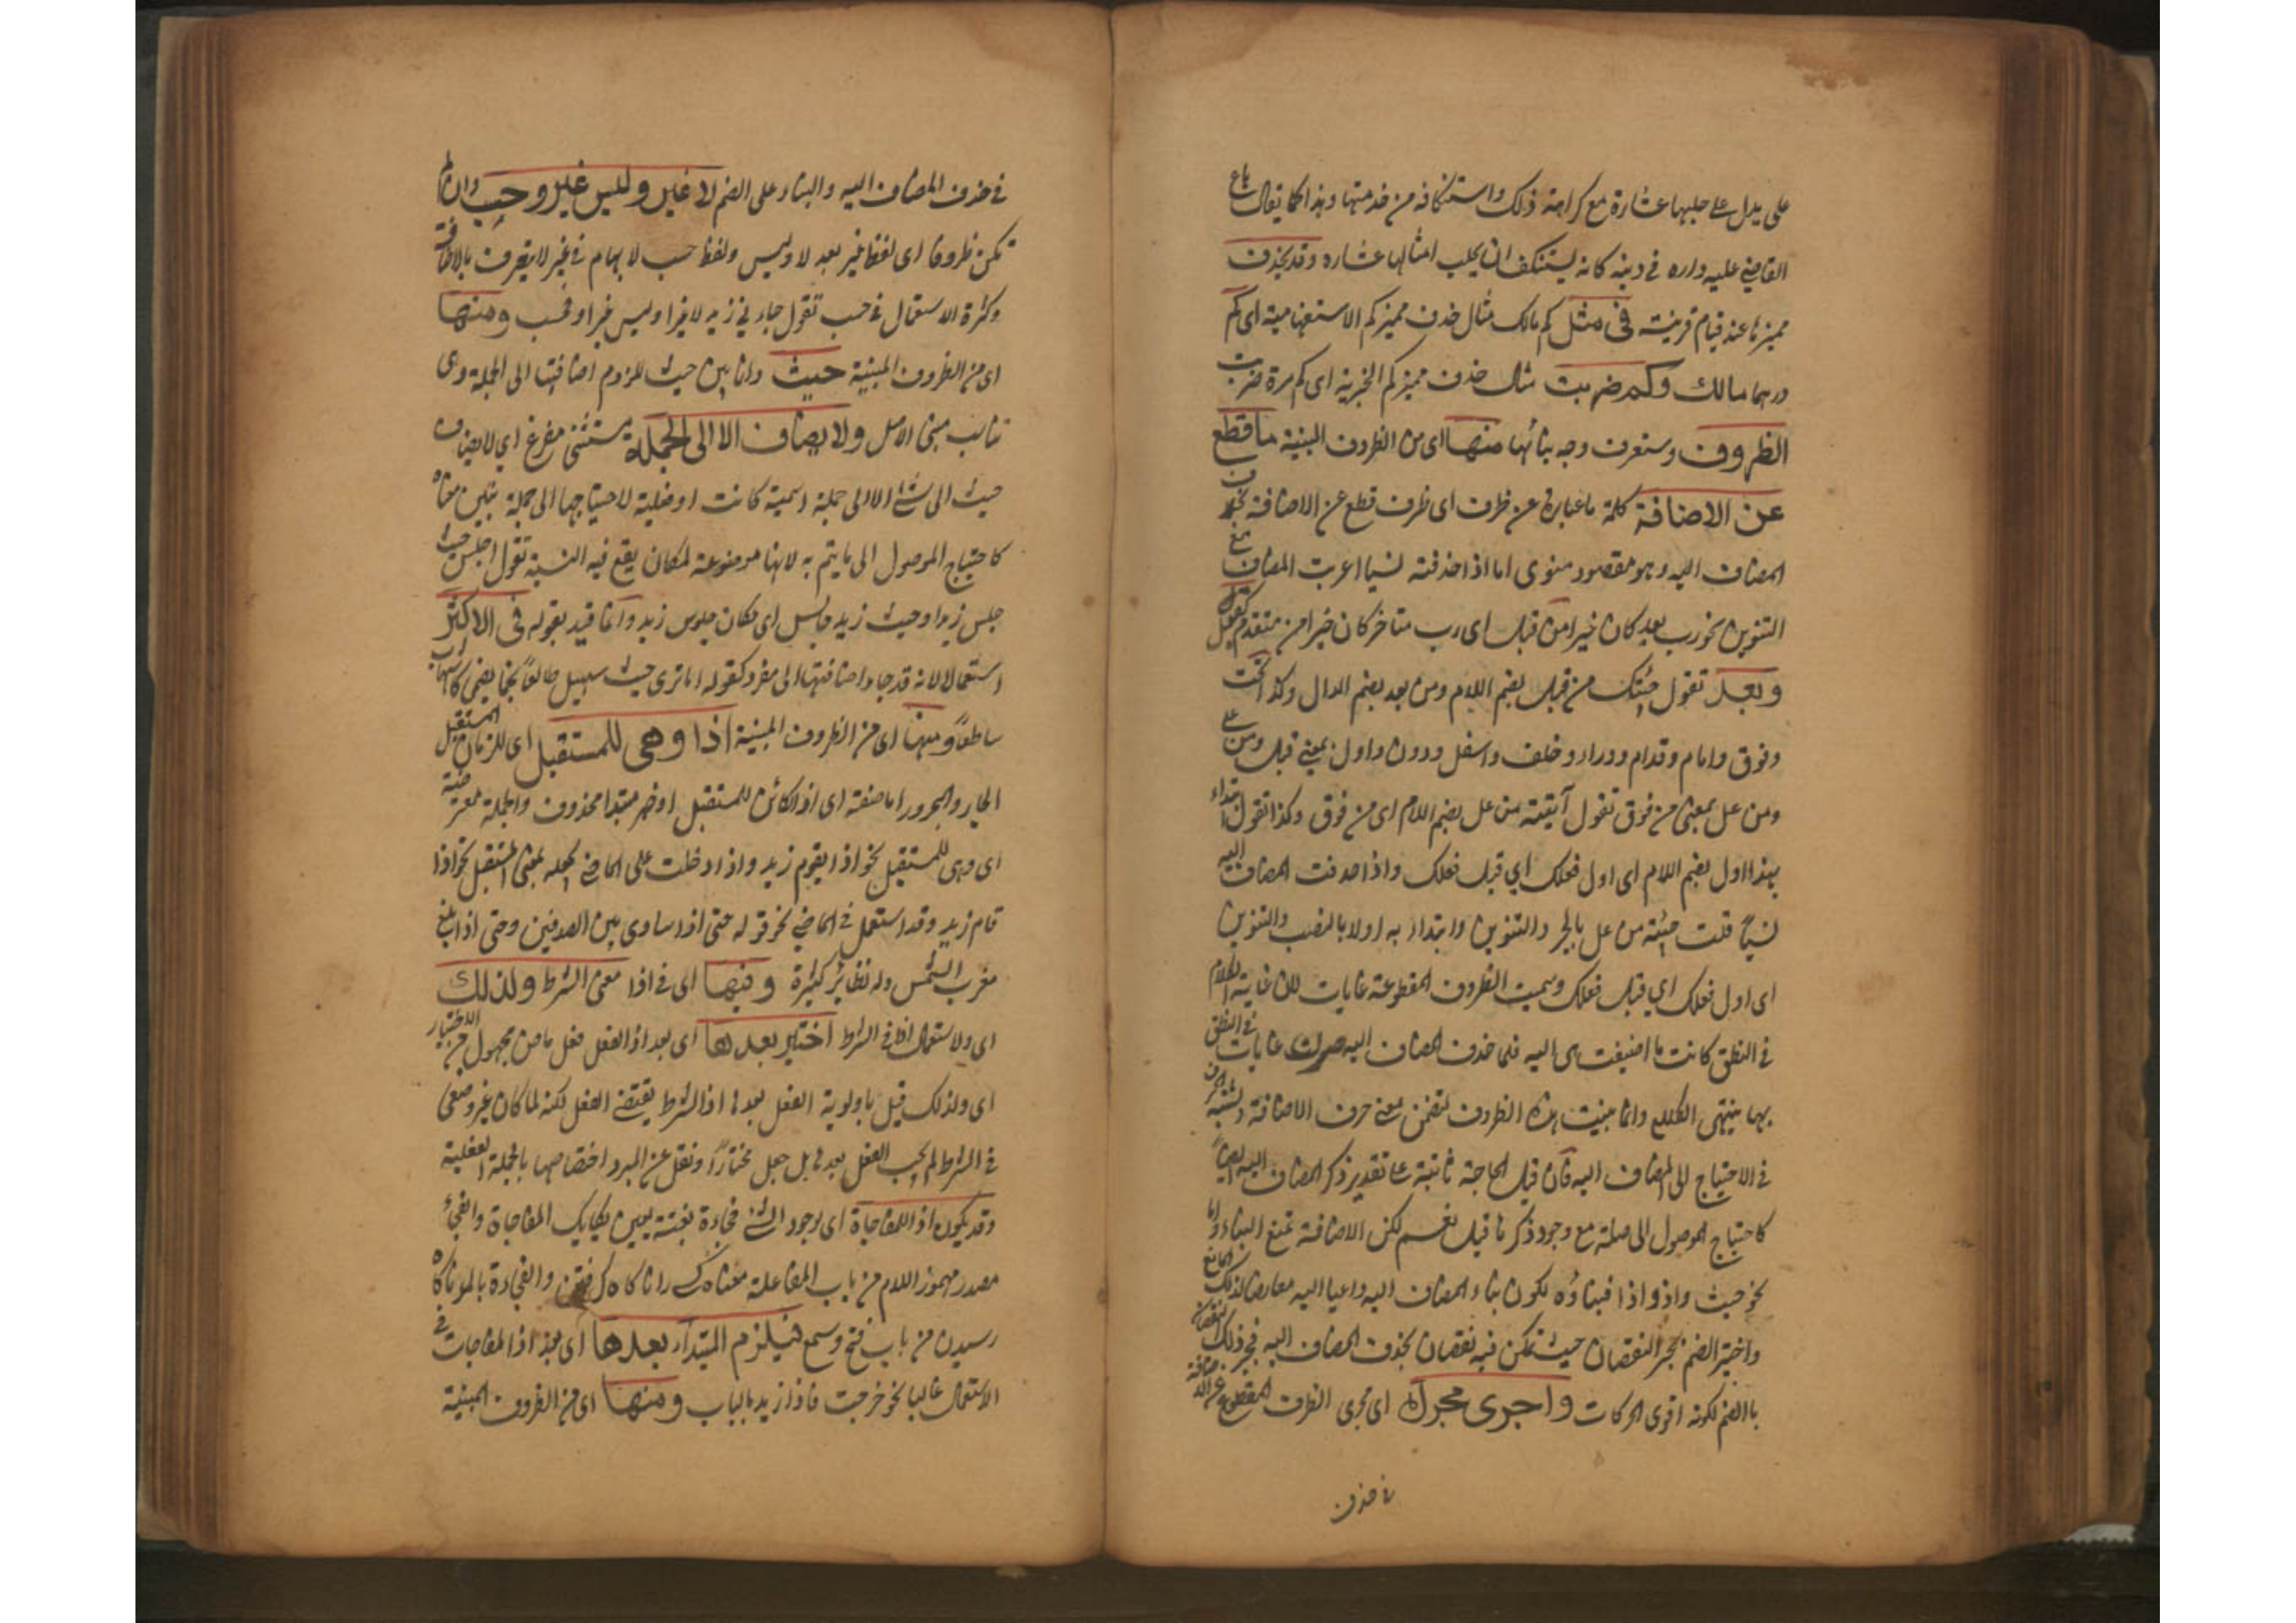 على يدل على حلبها عشارة مع كراهة ذلك واستنكافه من خدمتها وهذا كما يقال باع
القاضي عليه داره في دينه كانه يستنكف ان يحلب امثالها عشاره وقد يحذف
مميزها عند قيام قرينة في مثل كم مالك مثال حذف مميز كم الاستفهامية اى كم
درهما مالك وكم ضربت مثال حذف مميز كم الخبرية اى كم مرة ضربت
الظروف وستعرف وجه بنائها منها اى من الظروف المبنية ما قطع
عن الاضافة كلمة ما عبارة عن ظرف اى ظرف قطع عن الاضافة بحذف
المضاف اليه وهو مقصود منوى اما اذا حذفته نسيا اعرب المضاف مع
التنوين نحو رب بعد كان خيرا من قبل اى رب متاخر كان خيرا من متقدم كقبل
وبعد تقول جئتك من قبل بضم اللام ومن بعد بضم الدال وكذا تحت
وفوق وامام وقدام ووراء وخلف واسفل ودون واول بمعنى قبل ومن على
ومن عل بمعنى من فوق تقول آتيته من عل بضم اللام اى من فوق وكذا تقول ابتداء
بهذا اول بضم اللام اى اول فعلك اي قبل فعلك واذا حذفت المضاف اليه
نسيًا قلت جئته من عل بالجر والتنوين وابتداء به اولا بالنصب والتنوين
اى اول فعلك اي قبل فعلك وسميت الظروف المقطوعة غايات لان غاية الكلام
في النطق كانت ما اضيفت هى اليه فلما حذف المضاف اليه صرن غايات في النطق
بها ينتهى الكلام وانما بنيت هذه الظروف لتضمن معنى حرف الاضافة ولشبه الحرف
في الاحتياج الى المضاف اليه فان قيل الحاجة ثابتة على تقدير ذكر المضاف اليه ايضًا
كاحتياج الموصول الى صلة مع وجود ذكرها قيل نعم لكن الاضافة تمنع البناء واما
نحو حيث واذ واذا فبناؤه لكون بناء المضاف اليه داعيا اليه معارضا لذلك المانع
واختير الضم لجبر النقصان حيث تمكن فيه نقصان بحذف المضاف اليه فجبر ذلك النقصان
بالضم لكونه اقوى الحركات واجرى مجراه اى مجرى الظرف المقطوع عن الاضافة
في حذف
في حذف المضاف اليه والبناء على الضم لا غير وليس غير وحسب وان لم
تكن ظروفا اى لفظ غير بعد لا وليس ولفظ حسب لابهام في غير لا يتعرف بالاضافة
وكثرة الاستعمال في حسب تقول جاءني زيد لا غير او ليس غير او فحسب ومنها
اى من الظروف المبنية حيث وانما بنى حيث للزوم اضافتها الى الجملة وهى
تناسب مبنى الاصل ولا يضاف الا الى الجملة مستثنى مفرغ اي لا يضاف
حيث الى شئ الا الى جملة اسمية كانت او فعلية لاحتياجها الى جملة تبين معناه
كاحتياج الموصول الى ما يتم به لانها موضوعة لمكان يقع فيه النسبة تقول اجلس حيث
جلس زيد او حيث زيد جالس اى مكان جلوس زيد وانما قيد بقوله في الاكثر
استعمالا لانه قد جاء اضافتها الى مفرد كقوله اما ترى حيث سهيل طالعًا نجما يضئ كالشهاب
ساطعًا ومنها اى من الظروف المبنية اذا وهى للمستقبل اى للزمان المستقبل
الجار والمجرور اما صفة اى اذا الكائن للمستقبل او خبر مبتدا محذوف والجملة معترضة
اى وهى للمستقبل نحو اذا يقوم زيد واذا دخلت على الماضي تجعله بمعنى المستقبل نحو اذا
قام زيد وقد استعمل في الماضي نحو قوله حتى اذا ساوى بين الصدفين وحتى اذا بلغ
مغرب الشمس وله نظائر كثيرة وفيها اى في اذا معنى الشرط ولذلك
اى ولاستعمال اذا في الشرط اختير بعدها اى بعد اذا الفعل فعل ماض مجهول من الاختيار
اى ولذلك قيل باولوية الفعل بعدها اذ الشرط يقتضى الفعل لكنه لما كان غير وضعى
في الشرط لم يجب الفعل بعدها بل جعل مختارًا ونقل عن المبرد اختصاصها بالجملة الفعلية
وقد يكون اذا للمفاجاة اى لوجود الشئ فجاءة بغتة يعنى يكايك المفاجاة والفجئ
مصدر مهموز اللام من باب المفاعلة والفجاءة بالمد ناكاه
رسيدن من باب فتح وسمع فيلزم المبتداء بعدها اى بعد اذا المفاجات في
الاستعمال غالبا نحو خرجت فاذا زيد بالباب ومنها اى من الظروف المبنية